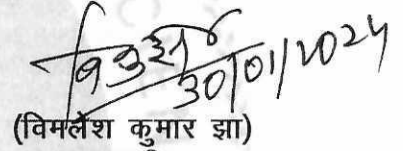 30/01/2024
(विमलेश कुमार झा)